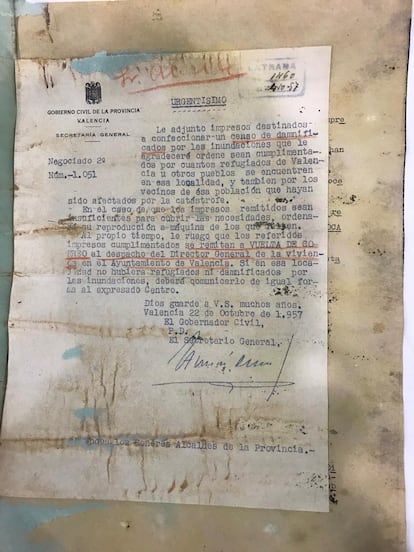 URGENTÍSIMO
ENTRADA
1460
GOBIERNO CIVIL DE LA PROVINCIA
VALENCIA
SECRETARÍA GENERAL
Negociado 2º
Núm.-1.051
Le adjunto impresos destinados
a confeccionar un censo de damnifi-
cados por las inundaciones que le
agradeceré ordene sean cumplimenta-
dos por cuantos refugiados de Valen-
cia u otros pueblos se encuentren
en esa localidad, y tambien por los
vecinos de esa población que hayan
sido afectados por la catástrofe.
En el caso de que los impresos remitidos sean
insuficientes para cubrir las necesidades, ordena
su reproducción a máquina de los que falten.
Al propio tiempo, le ruego que los referidos
impresos cumplimentados se remitan a VUELTA DE CO
RREO al despacho del Director General de la vivien-
da en el Ayuntamiento de Valencia. Si en esa loca-
lidad no hubiera refugiados ni damnificados por
las inundaciones, deberá comunicarlo de igual for-
ma al expresado Centro.
Dios guarde a V.S. muchos años.
Valencia 22 de Octubre de 1.957
El Gobernador Civil,
P.D.
El Secretario General,
Señores Alcaldes de la Provincia.-